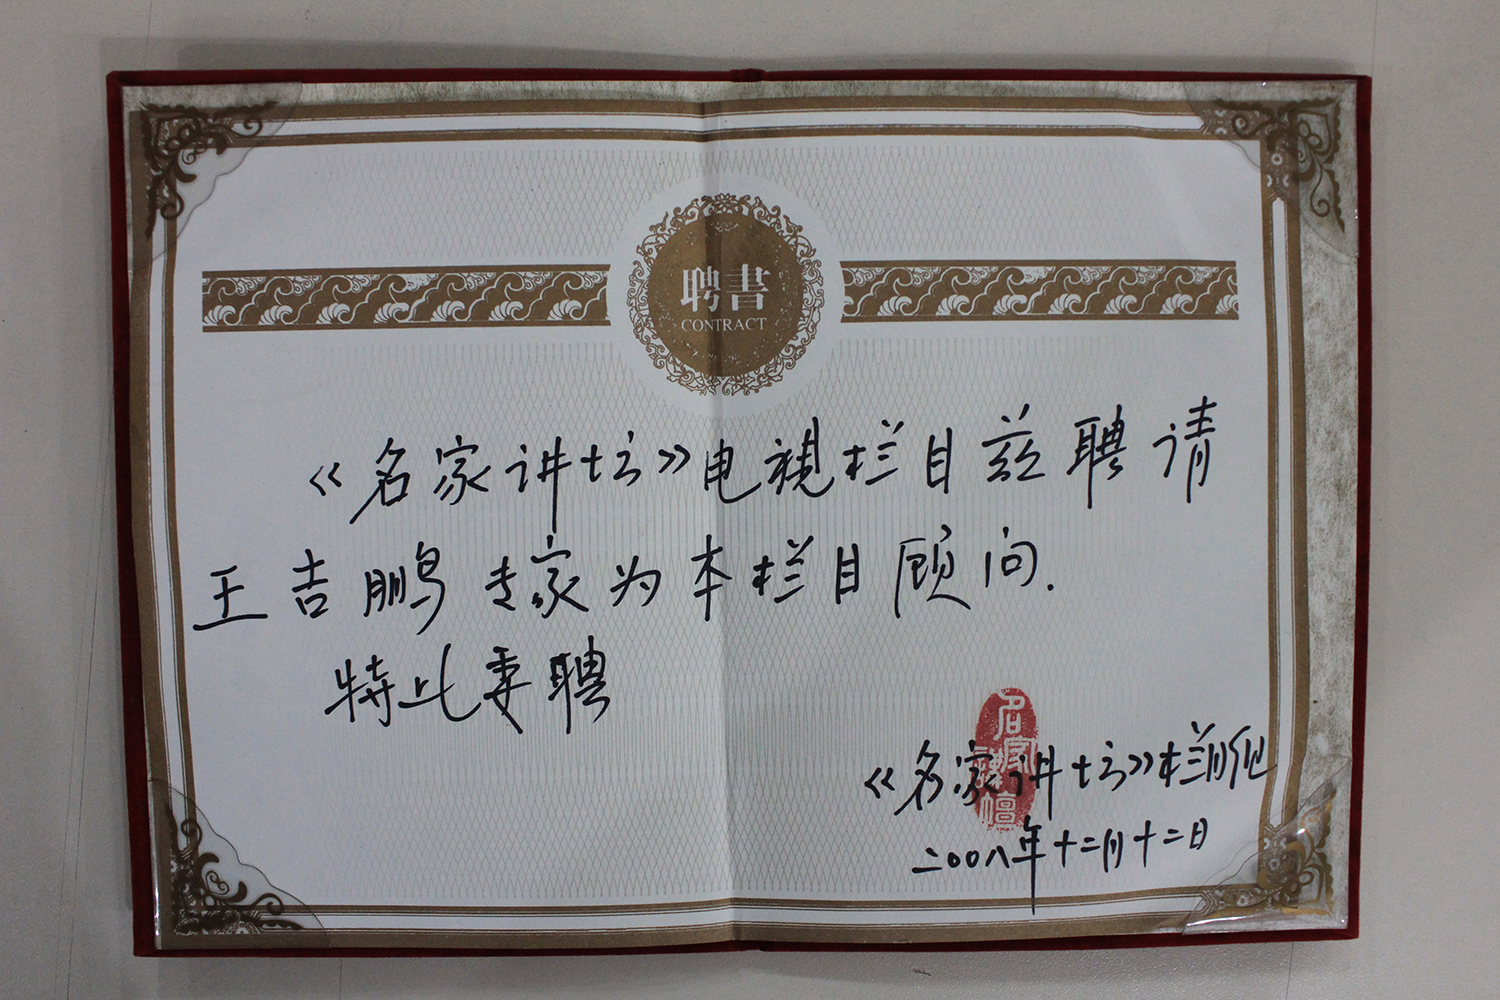 聘書
CONTRACT
《名家讲坛》电視栏目兹聘请
王吉鹏专家为本栏目顾问.
特此秉聘
《名家讲坛》栏目组
二〇〇八年十二月十二日